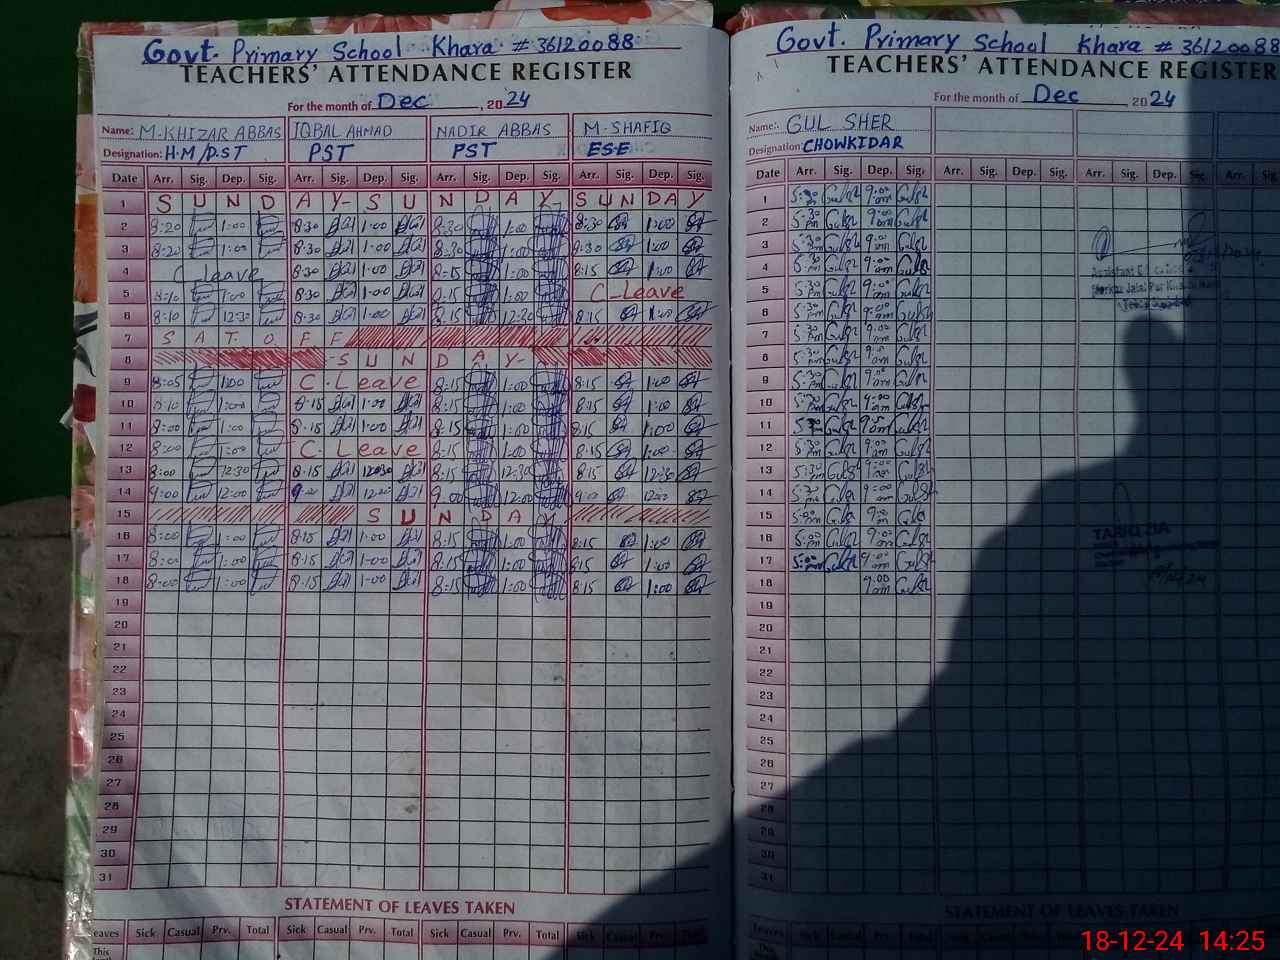 Govt. Primary School Khara # 36120088
TEACHERS' ATTENDANCE REGISTER
For the month of Dec, 2024
Name: M.KHIZAR ABBAS IQBAL AHMAD NADIR ABBAS M-SHAFIQ
Designation: H.M/P.S.T PST PST ESE
Date Arr. Sig. Dep. Sig. Arr. Sig. Dep. Sig. Arr. Sig. Dep. Sig. Arr. Sig. Dep. Sig.
1 S U N D A Y- S U N D A Y S U N D A Y
2 8:20 1:00 8:30 1:00 8:30 1:00 8:30 1:00
3 8:20 1:00 8:30 1:00 8:30 1:00 8:30 1:00
4 C Leave 8:30 1:00 8:15 1:00 8:15 1:00
5 8:10 1:00 8:30 1:00 8:15 1:00 C-Leave
6 8:10 12:30 8:30 1:00 8:15 12:30 8:15 1:00
7 S A T. O F F
8 -S U N D A Y-
9 8:05 1:00 C-Leave 8:15 1:00 8:15 1:00
10 8:10 1:00 8:15 1:00 8:15 1:00 8:15 1:00
11 8:00 1:00 8:15 1:00 8:15 1:00 8:15 1:00
12 8:00 1:00 C-Leave 8:15 1:00 8:15 1:00
13 8:00 12:30 8:15 12:30 8:15 12:30 8:15 12:30
14 9:00 12:00 12:00 9:00 12:00 9:00 12:00
15 S U N D A Y
16 8:00 1:00 8:15 1:00 8:15 1:00 8:15 1:00
17 8:00 1:00 8:15 1:00 8:15 1:00 8:15 1:00
18 8:00 1:00 8:15 1:00 8:15 1:00 8:15 1:00
19
20
21
22
23
24
25
26
27
28
29
30
31
STATEMENT OF LEAVES TAKEN
Leaves Sick Casual Prv. Total Sick Casual Prv. Total Sick Casual Prv. Total Sick Casual Prv.
This
Govt. Primary School Khara # 36120088
TEACHERS' ATTENDANCE REGISTER
For the month of Dec 2024
Name: GUL SHER
Designation: CHOWKIDAR
Date Arr. Sig. Dep. Sig. Arr. Sig. Dep. Sig. Arr. Sig. Dep. Sig. Arr. Sig.
1 5:30 pm Gulsr 9:00 am Gulsr
2 5:30 pm Gulsr 9:00 am Gulsr
3 5:30 pm Gulsr 9:00 Gulsr
4 5:30 pm Gulsr 9:00 am Gulsr
5 5:30 pm Gulsr 9:00 am Gulsr
6 5:30 pm Gulsr 9:00 am Gulsr
7 5:30 pm Gulsr 9:00 am Gulsr
8 5:30 pm Gulsr 9:00 am Gulsr
9 5:30 pm Gulsr 9:00 am Gulsr
10 5:30 pm Gulsr 9:00 am Gulsr
11 5:30 pm Gulsr 9:00 am Gulsr
12 5:30 pm Gulsr 9:00 am Gulsr
13 5:30 pm Gulsr 9:00 am Gulsr
14 5:30 pm Gulsr 9:00 am Gulsr
15 5:00 pm Gulsr 9:00 am Gulsr
16 5:00 pm Gulsr 9:00 am Gulsr
17 5:00 pm Gulsr 9:00 am Gulsr
18 9:00 am Gulsr
19
20
21
22
23
24
25
26
27
28
29
30
31
TARIQ ZIA
STATEMENT OF LEAVES TAKEN
Leaves Sick Casual Prv. Total Sick Casual Prv. Total Sick Casual Prv. Total Sick
18-12-24 14:25